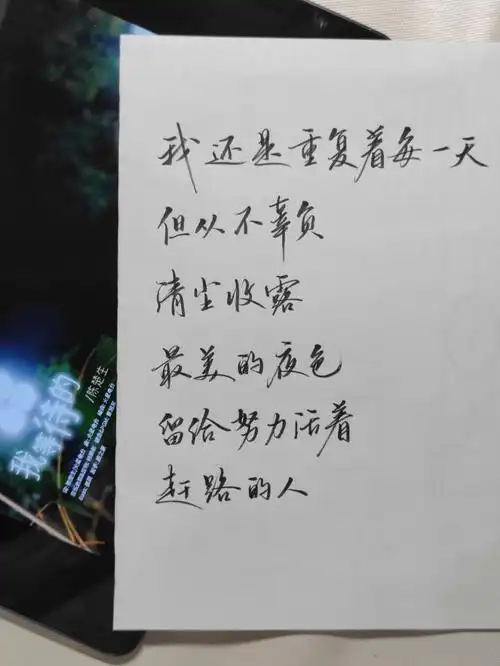 我还是重复着每一天
但从不辜负
清尘收露
最美的夜色
留给努力活着
赶路的人
我等待的
/陈楚生